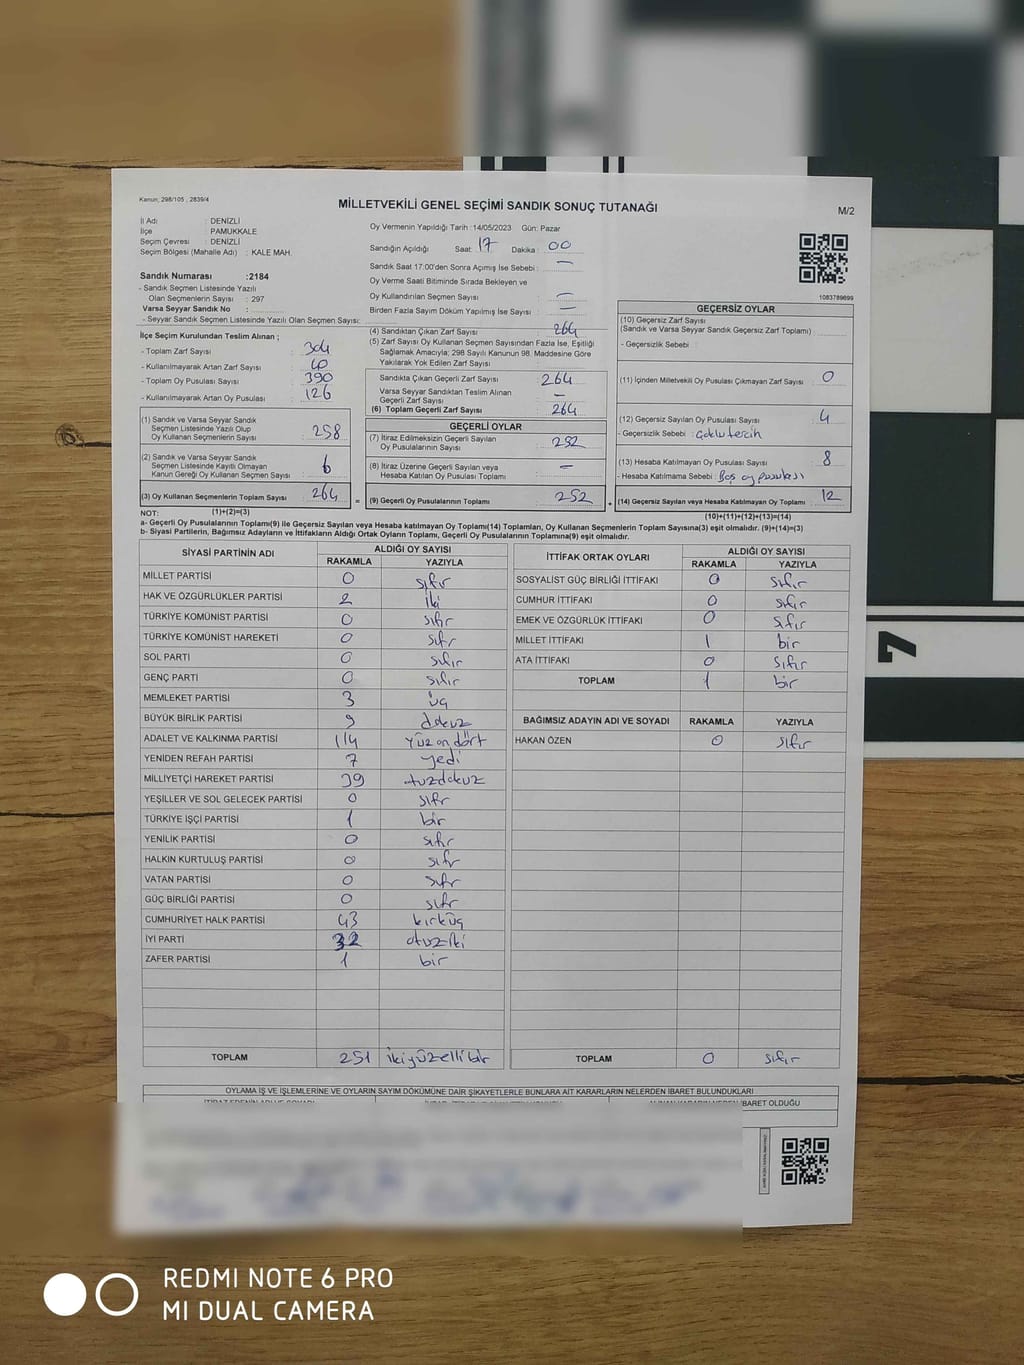 Kanun; 298/105 , 2839/4
MİLLETVEKİLİ GENEL SEÇİMİ SANDIK SONUÇ TUTANAĞI
M/2
İl Adı : DENİZLİ
İlçe : PAMUKKALE
Seçim Çevresi : DENİZLİ
Seçim Bölgesi (Mahalle Adı) : KALE MAH.
Sandık Numarası :2184
- Sandık Seçmen Listesinde Yazılı
Olan Seçmenlerin Sayısı : 297
Varsa Seyyar Sandık No :
- Seyyar Sandık Seçmen Listesinde Yazılı Olan Seçmen Sayısı:
İlçe Seçim Kurulundan Teslim Alınan ;
- Toplam Zarf Sayısı : 304
- Kullanılmayarak Artan Zarf Sayısı : 40
- Toplam Oy Pusulası Sayısı : 390
- Kullanılmayarak Artan Oy Pusulası : 126
(1) Sandık ve Varsa Seyyar Sandık
Seçmen Listesinde Yazılı Olup
Oy Kullanan Seçmenlerin Sayısı : 258
(2) Sandık ve Varsa Seyyar Sandık
Seçmen Listesinde Kayıtlı Olmayan
Kanun Gereği Oy Kullanan Seçmen Sayısı : 6
(3) Oy Kullanan Seçmenlerin Toplam Sayısı : 264
Oy Vermenin Yapıldığı Tarih :14/05/2023 Gün: Pazar
Sandığın Açıldığı Saat: 17 Dakika : 00
Sandık Saat 17:00'den Sonra Açımış İse Sebebi : —
Oy Verme Saati Bitiminde Sırada Bekleyen ve
Oy Kullandırılan Seçmen Sayısı : —
Birden Fazla Sayım Döküm Yapılmış İse Sayısı : —
(4) Sandıktan Çıkan Zarf Sayısı : 264
(5) Zarf Sayısı Oy Kullanan Seçmen Sayısından Fazla İse, Eşitliği
Sağlamak Amacıyla; 298 Sayılı Kanunun 98. Maddesine Göre
Yakılarak Yok Edilen Zarf Sayısı :
Sandıkta Çıkan Geçerli Zarf Sayısı : 264
Varsa Seyyar Sandıktan Teslim Alınan
Geçerli Zarf Sayısı : —
(6) Toplam Geçerli Zarf Sayısı : 264
GEÇERLİ OYLAR
(7) İtiraz Edilmeksizin Geçerli Sayılan
Oy Pusulalarının Sayısı : 252
(8) İtiraz Üzerine Geçerli Sayılan veya
Hesaba Katılan Oy Pusulaları Toplamı : —
= (9) Geçerli Oy Pusulalarının Toplamı : 252
1083789699
GEÇERSİZ OYLAR
(10) Geçersiz Zarf Sayısı
(Sandık ve Varsa Seyyar Sandık Geçersiz Zarf Toplamı) :
- Geçersizlik Sebebi :
(11) İçinden Milletvekili Oy Pusulası Çıkmayan Zarf Sayısı : 0
(12) Geçersiz Sayılan Oy Pusulası Sayısı : 4
- Geçersizlik Sebebi : Çoklu tercih
(13) Hesaba Katılmayan Oy Pusulası Sayısı : 8
- Hesaba Katılmama Sebebi : Boş oy pusulası
+ (14) Geçersiz Sayılan veya Hesaba Katılmayan Oy Toplamı : 12
NOT: (1)+(2)=(3) (10)+(11)+(12)+(13)=(14)
a- Geçerli Oy Pusulalarının Toplamı(9) ile Geçersiz Sayılan veya Hesaba katılmayan Oy Toplamı(14) Toplamları, Oy Kullanan Seçmenlerin Toplam Sayısına(3) eşit olmalıdır. (9)+(14)=(3)
b- Siyasi Partilerin, Bağımsız Adayların ve İttifakların Aldığı Ortak Oyların Toplamı, Geçerli Oy Pusulalarının Toplamına(9) eşit olmalıdır.
SİYASİ PARTİNİN ADI ALDIĞI OY SAYISI
RAKAMLA YAZIYLA
MİLLET PARTİSİ 0 sıfır
HAK VE ÖZGÜRLÜKLER PARTİSİ 2 iki
TÜRKİYE KOMÜNİST PARTİSİ 0 sıfır
TÜRKİYE KOMÜNİST HAREKETİ 0 sıfır
SOL PARTİ 0 sıfır
GENÇ PARTİ 0 sıfır
MEMLEKET PARTİSİ 3 üç
BÜYÜK BİRLİK PARTİSİ 9 dokuz
ADALET VE KALKINMA PARTİSİ 114 yüz on dört
YENİDEN REFAH PARTİSİ 7 yedi
MİLLİYETÇİ HAREKET PARTİSİ 39 otuzdokuz
YEŞİLLER VE SOL GELECEK PARTİSİ 0 sıfır
TÜRKİYE İŞÇİ PARTİSİ 1 bir
YENİLİK PARTİSİ 0 sıfır
HALKIN KURTULUŞ PARTİSİ 0 sıfır
VATAN PARTİSİ 0 sıfır
GÜÇ BİRLİĞİ PARTİSİ 0 sıfır
CUMHURİYET HALK PARTİSİ 43 kırküç
İYİ PARTİ 32 otuziki
ZAFER PARTİSİ 1 bir
TOPLAM 251 ikiyüzellibir
İTTİFAK ORTAK OYLARI ALDIĞI OY SAYISI
RAKAMLA YAZIYLA
SOSYALİST GÜÇ BİRLİĞİ İTTİFAKI 0 sıfır
CUMHUR İTTİFAKI 0 sıfır
EMEK VE ÖZGÜRLÜK İTTİFAKI 0 sıfır
MİLLET İTTİFAKI 1 bir
ATA İTTİFAKI 0 sıfır
TOPLAM 1 bir
BAĞIMSIZ ADAYIN ADI VE SOYADI RAKAMLA YAZIYLA
HAKAN ÖZEN 0 sıfır
TOPLAM 0 sıfır
OYLAMA İŞ VE İŞLEMLERİNE VE OYLARIN SAYIM DÖKÜMÜNE DAİR ŞİKAYETLERLE BUNLARA AİT KARARLARIN NELERDEN İBARET BULUNDUKLARI
İBARET OLDUĞU
7
REDMI NOTE 6 PRO
MI DUAL CAMERA